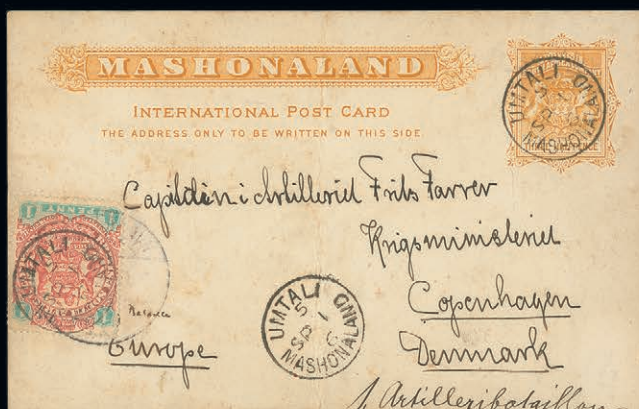 MASHONALAND
INTERNATIONAL POST CARD
THE ADDRESS ONLY TO BE WRITTEN ON THIS SIDE.
UMTALI
MASHONALAND
Capitainen i Artilleriet Frits Farrer
Krigsministeriet
Copenhagen
Denmark
Europe
1 PENNY 1
UMTALI
UMTALI
MASHONALAND
SP 1
1. Artilleribataillon